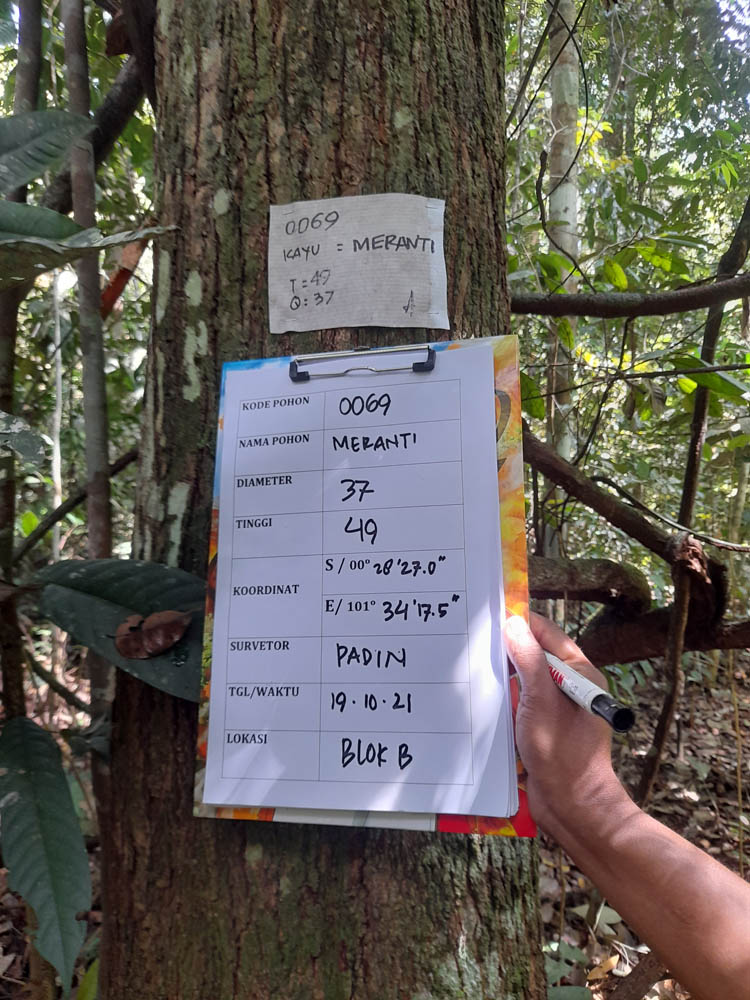 0069
KAYU = MERANTI
T = 49
Q : 37
KODE POHON 0069
NAMA POHON MERANTI
DIAMETER 37
TINGGI 49
KOORDINAT
S / 00° 28'27.0"
E / 101° 34'17.5"
SURVETOR PADIN
TGL/WAKTU 19.10.21
LOKASI BLOK B